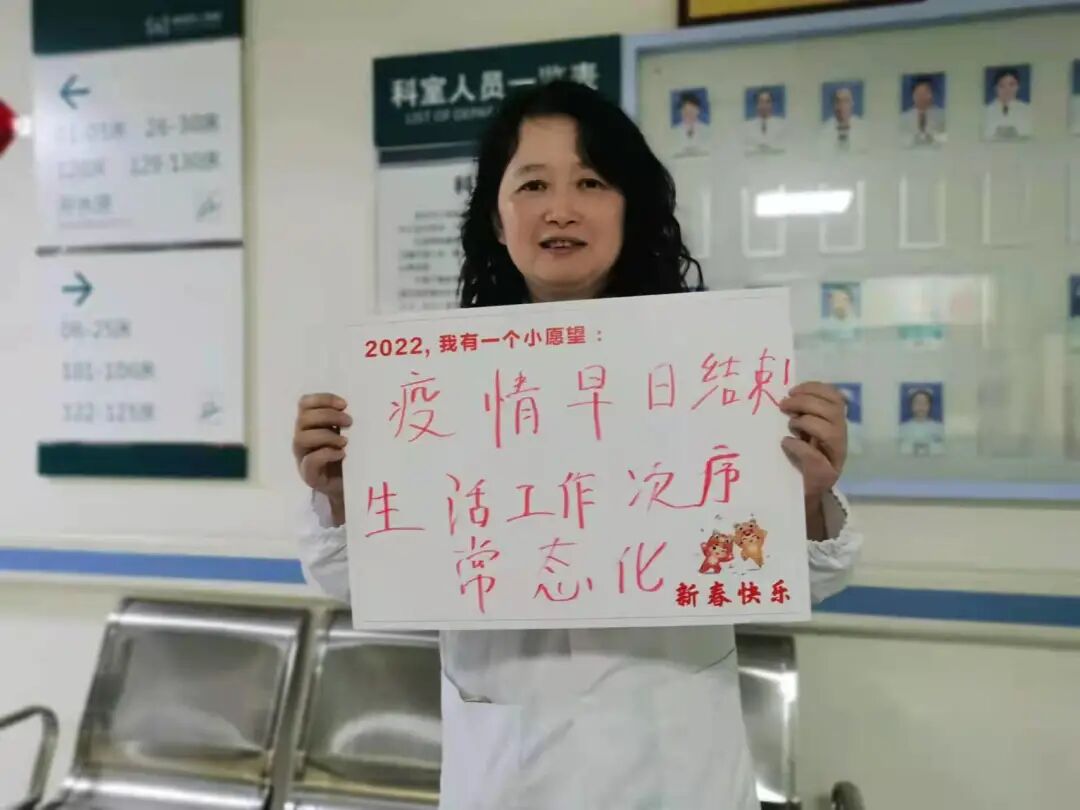 01-05床 26-30床
129-130床
06-25床
101-106床
122-125床
科室人员一览表
LIST OF DEPA
2022, 我有一个小愿望：
疫情早日结束
生活工作次序
常态化
新春快乐